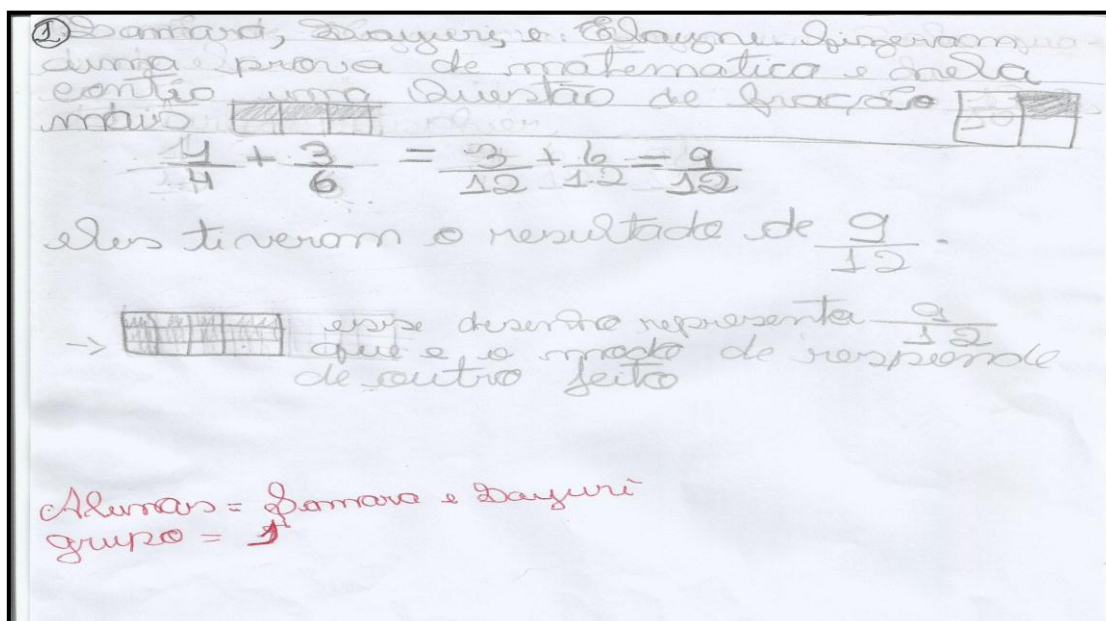 ① Samara, Dayuri, e Elayne fizeram
uma prova de matematica e nela
contio uma Questão de fração
mais
1/4 + 3/6 = 3/12 + 6/12 = 9/12
eles tiveram o resultado de 9/12.
→ esse desenho representa 9/12
que e o modo de responde
de outro feito
Alunas = Samara e Dayuri
grupo = 1